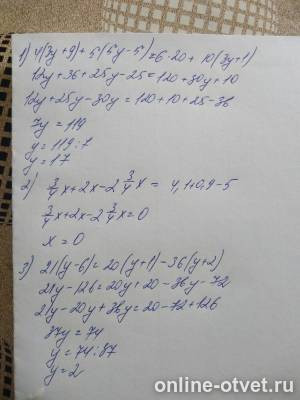 1) 4(3y+9)+5(5y-5)=6·20+10(3y+1)
12y+36+25y-25=120+30y+10
12y+25y-30y=120+10+25-36
7y=119
y=119:7
y=17
2) 3/4x+2x-2 3/4x= 4,1+0,9-5
3/4x+2x-2 3/4x=0
x=0
3) 21(y-6)=20(y+1)-36(y+2)
21y-126=20y+20-36y-72
21y-20y+36y=20-72+126
37y=74
y=74:37
y=2
online-otvet.ru